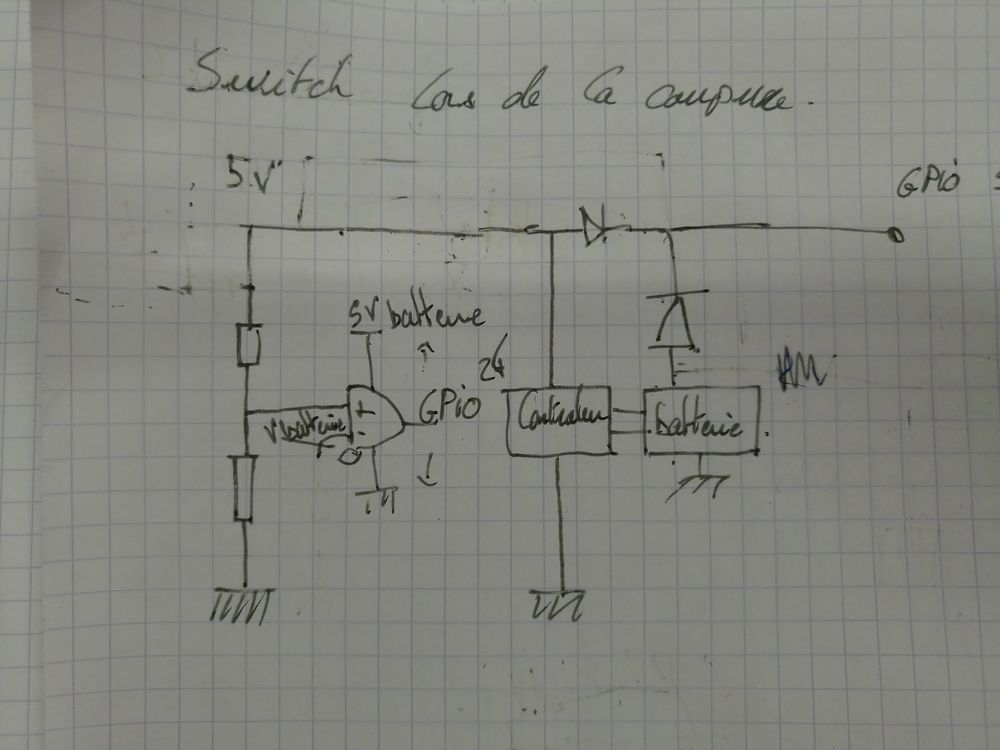 Switch lors de la coupure.
5V
GPio 5
5V batterie
GPio 24
+
V batterie
-
Controleur
batterie